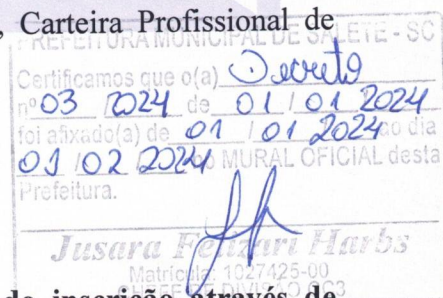 , Carteira Profissional de
PREFEITURA MUNICIPAL DE SALETE - SC
Certificamos que o(a) Decreto
nº 03 2024 de 01 / 01 2024
foi afixado(a) de 01 / 01 2024 ao dia
01 / 02 2024 no MURAL OFICIAL desta
Prefeitura.
Jusara Felizari Harbs
Matrícula: 1027425-00
CHEFE DE DIVISÃO
de inscrição através de